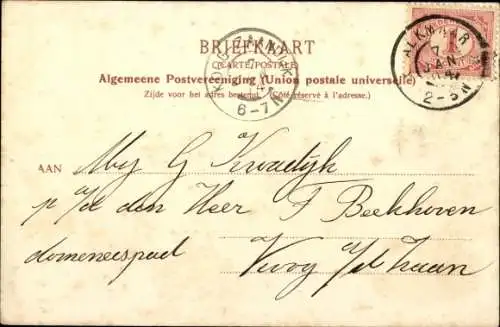 BRIEFKAART
(CARTE POSTALE)
Algemeene Postvereeniging (Union postale universelle)
Zijde voor het adres bestemd. (Côté réservé à l'adresse.)
ALKMAAR
7
JAN
2-3N
6-7
AAN Mej G Kwadijk
p a/d den Heer F Beekhoven
domeneespad
a/d Zaan